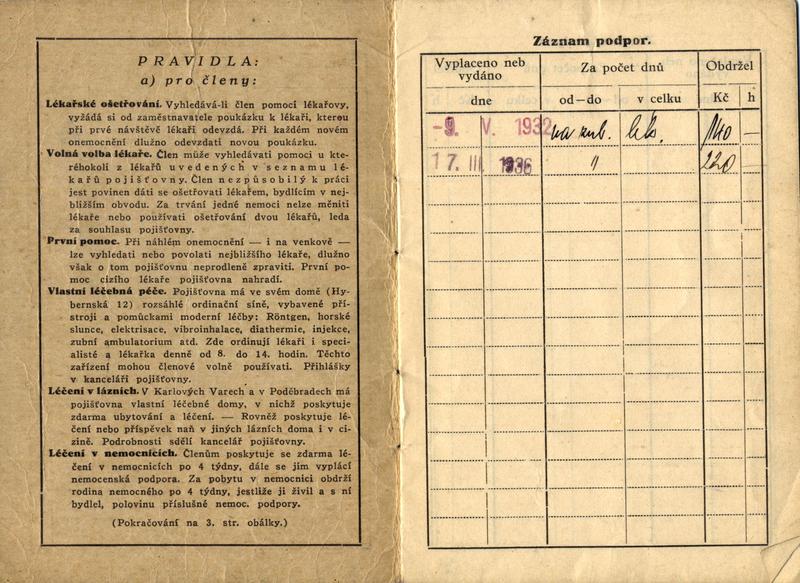 PRAVIDLA:
a) pro členy:
Lékařské ošetřování. Vyhledává-li člen pomoci lékařovy,
vyžádá si od zaměstnavatele poukázku k lékaři, kterou
při prvé návštěvě lékaři odevzdá. Při každém novém
onemocnění dlužno odevzdati novou poukázku.
Volná volba lékaře. Člen může vyhledávati pomoci u kte-
réhokoli z lékařů uvedených v seznamu lé-
kařů pojišťovny. Člen nezpůsobilý k práci
jest povinen dáti se ošetřovati lékařem, bydlícím v nej-
bližším obvodu. Za trvání jedné nemoci nelze měniti
lékaře nebo používati ošetřování dvou lékařů, leda
za souhlasu pojišťovny.
První pomoc. Při náhlém onemocnění — i na venkově —
lze vyhledati nebo povolati nejbližšího lékaře, dlužno
však o tom pojišťovnu neprodleně zpraviti. První po-
moc cizího lékaře pojišťovna nahradí.
Vlastní léčebná péče. Pojišťovna má ve svém domě (Hy-
bernská 12) rozsáhlé ordinační síně, vybavené pří-
stroji a pomůckami moderní léčby: Röntgen, horské
slunce, elektrisace, vibroinhalace, diathermie, injekce,
zubní ambulatorium atd. Zde ordinují lékaři i speci-
alisté a lékařka denně od 8. do 14. hodin. Těchto
zařízení mohou členové volně používati. Přihlášky
v kanceláři pojišťovny.
Léčení v lázních. V Karlových Varech a v Poděbradech má
pojišťovna vlastní léčebné domy, v nichž poskytuje
zdarma ubytování a léčení. — Rovněž poskytuje lé-
čení nebo příspěvek naň v jiných lázních doma i v ci-
zině. Podrobnosti sdělí kancelář pojišťovny.
Léčení v nemocnicích. Členům poskytuje se zdarma lé-
čení v nemocnicích po 4 týdny, dále se jim vyplácí
nemocenská podpora. Za pobytu v nemocnici obdrží
rodina nemocného po 4 týdny, jestliže ji živil a s ní
bydlel, polovinu příslušné nemoc. podpory.
(Pokračování na 3. str. obálky.)
Záznam podpor.
Vyplaceno neb
vydáno
Za počet dnů
Obdržel
dne
od—do
v celku
Kč
h
-9. V. 1932 na zub. lék. —
17. III. 1936 " 220 —